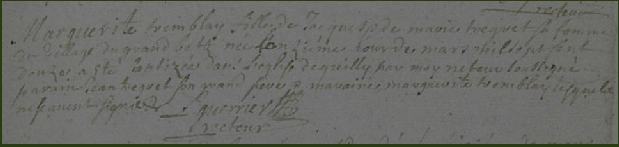 recteur
Marguerite tremblay fille de Jacques & de marie tregret sa femme
du village du grand betz née le onzième jour de mars mil sept cent
douze a été baptizée dans l'eglise de quilly par moy recteur soussigné
parain Jean tregret son grand pere & maraine marguerite tremblay lesquels
ne scavent signer
Guerrier
recteur